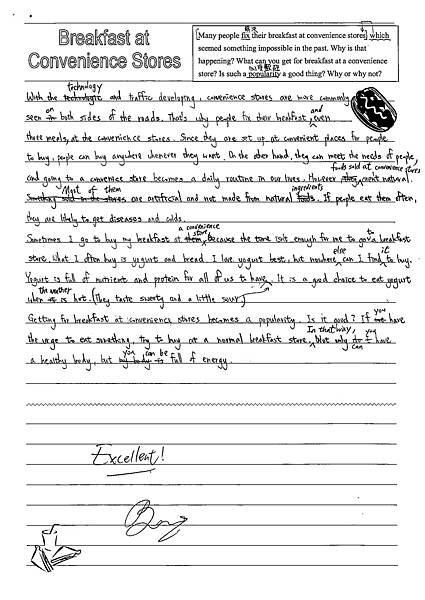 Breakfast at
Convenience Stores
Many people fix their breakfast at convenience stores, which
seemed something impossible in the past. Why is that
happening? What can you get for breakfast at a convenience
store? Is such a popularity a good thing? Why or why not?
technology
With the and traffic developing, convenience stores are more commonly
on
seen both sides of the roads. That's why people fix their breakfast, even
and
three meals, at the convenience stores. Since they are set up at convenient places for people
to buy, people can buy anywhere whenever they want. On the other hand, they can meet the needs of people,
foods sold at convenience stores
and going to a convenience store becomes a daily routine in our lives. However, they aren't natural.
Most of them ingredients
Something sold in the stores are artificial and not made from natural foods. If people eat them often,
they are likely to get diseases and colds.
a convenience
store to
Sometimes I go to buy my breakfast at them, because the time isn't enough for me to go a breakfast
else it
store. What I often buy is yogurt and bread. I love yogurt best, but nowhere can I find to buy.
Yogurt is full of nutrient and protein for all of us to have. It is a good choice to eat yogurt
the weather
when it is hot. (They taste sweety and a little sour.)
Getting for breakfast at convenience stores becomes a popularity. Is it good? If you have
In that way, you
the urge to eat something, try to buy at a normal breakfast store. Not only can have
you can be
a healthy body, but my body is full of energy.
Excellent!